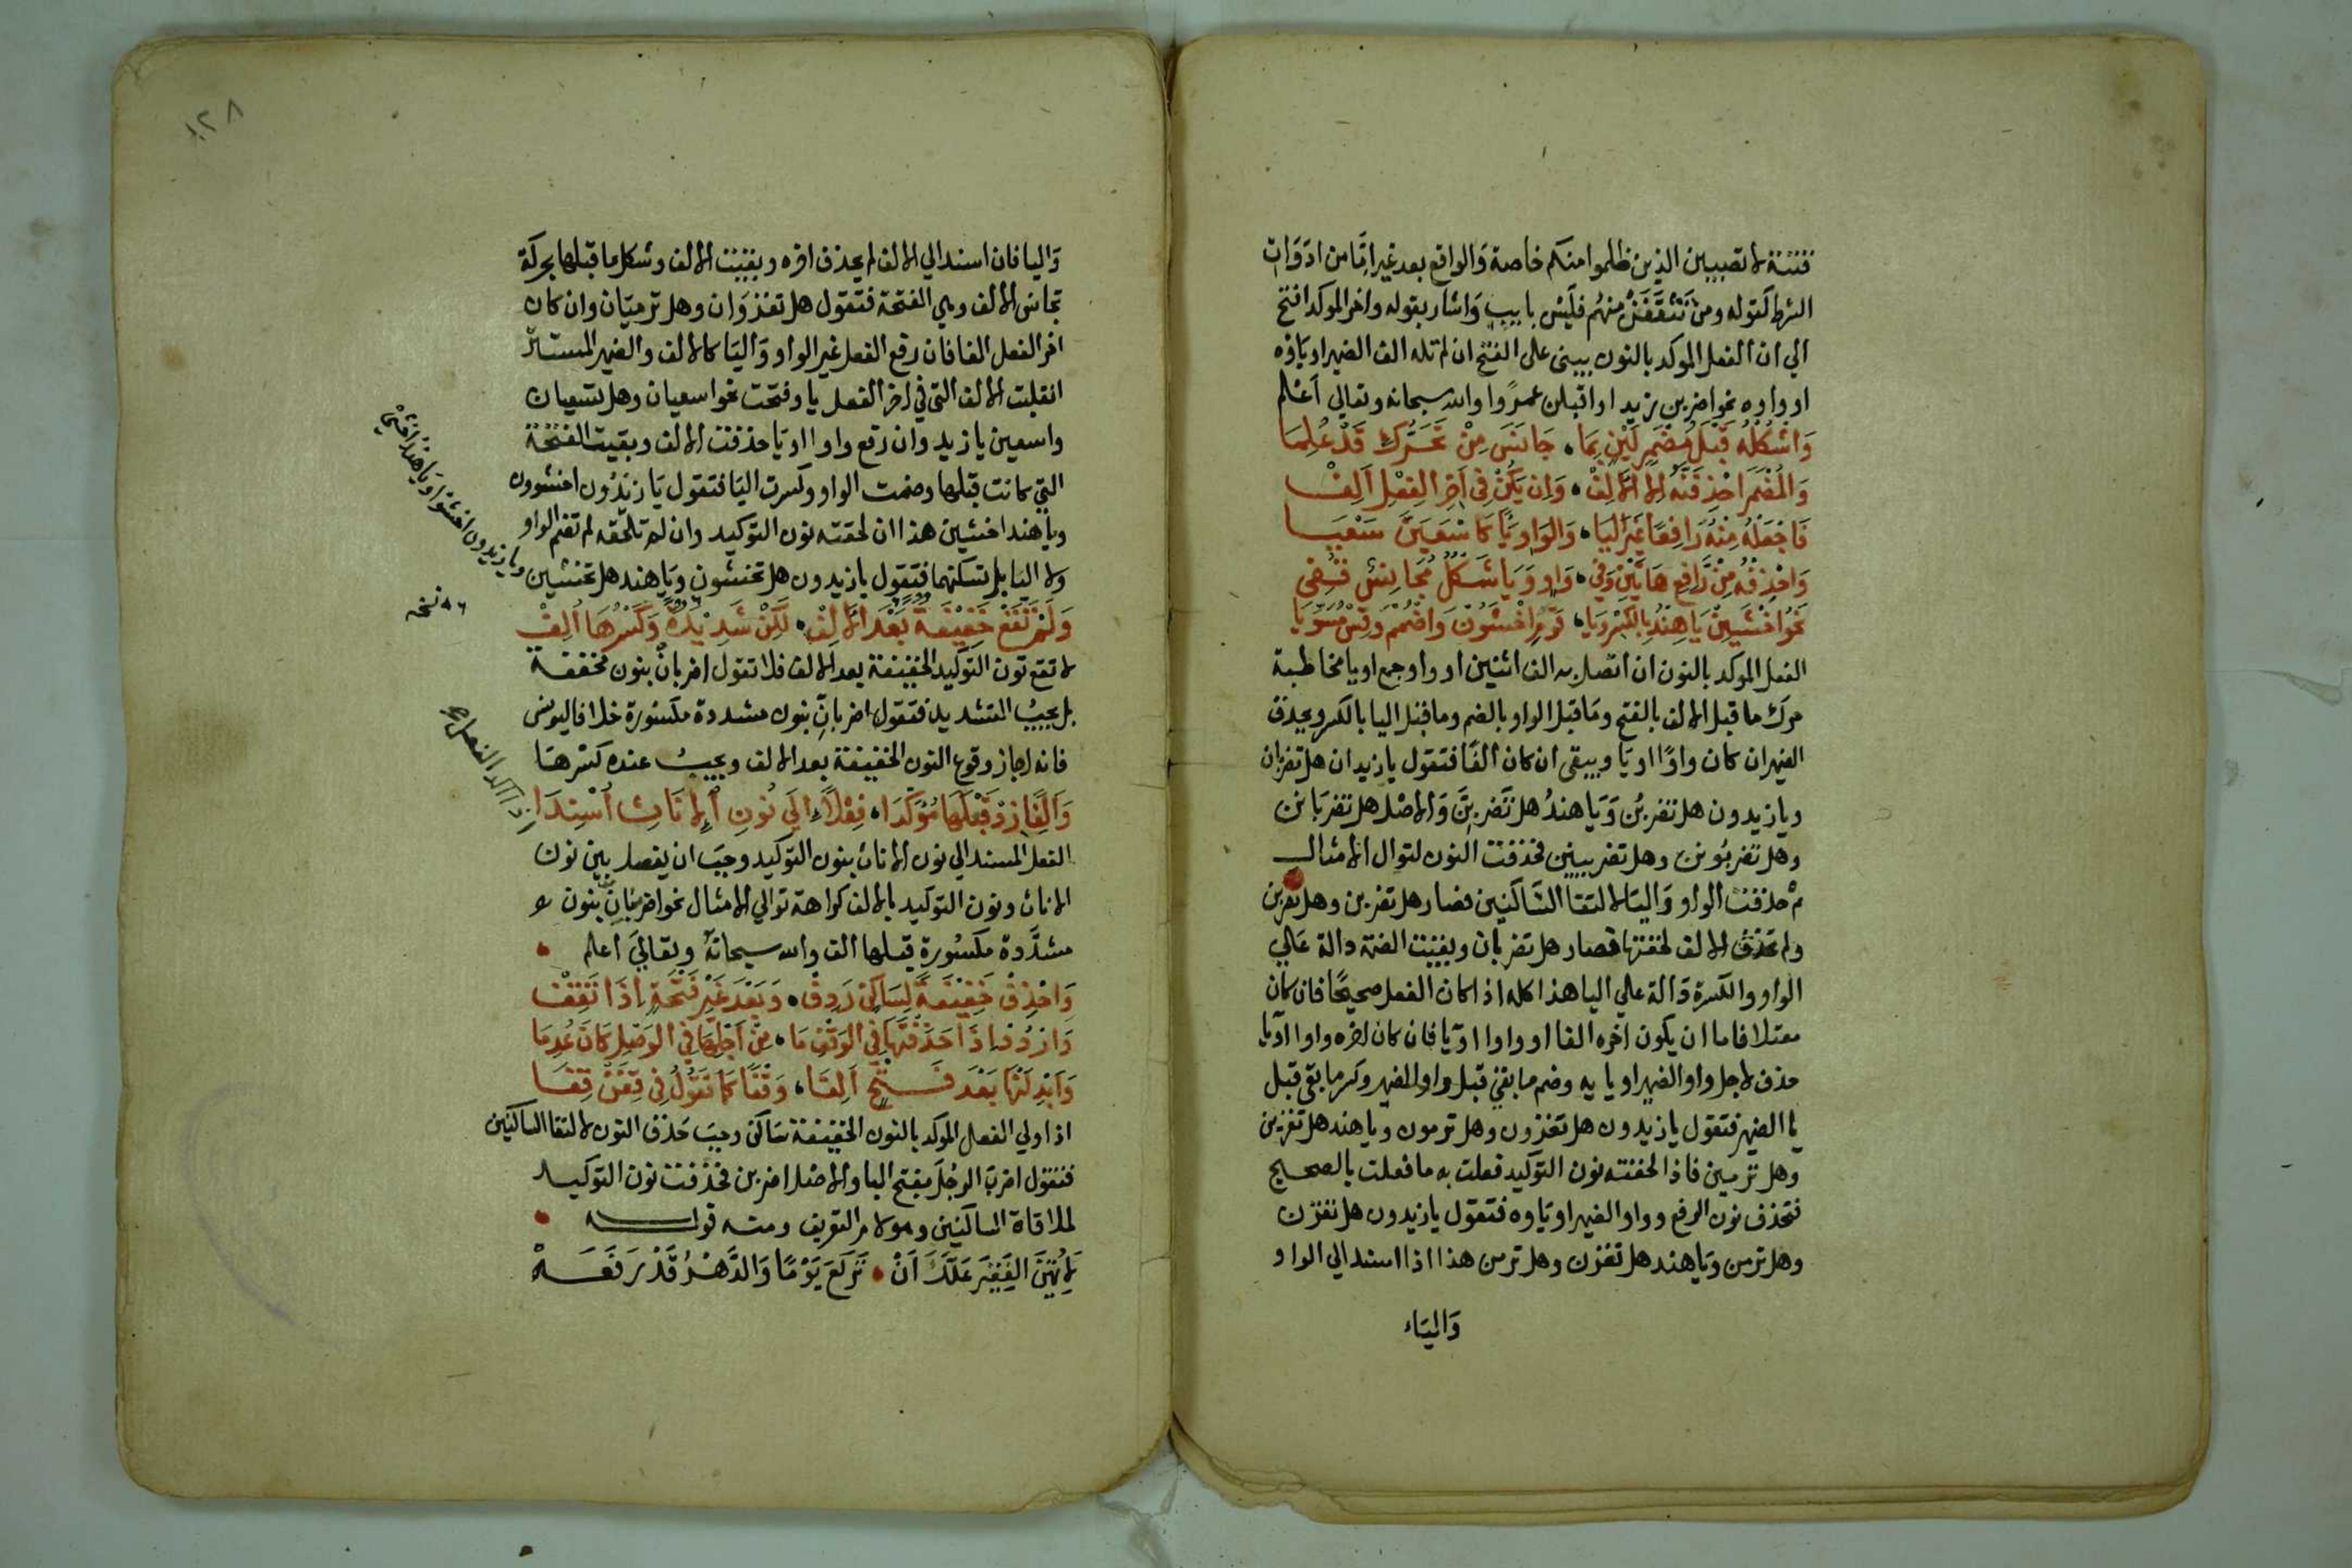 فتنة لا تصيبين الذين ظلموا منكم خاصة وَالواقع بعد غير امَّا من ادوَات
الشرط كقوله ومن تَثْقَفَنْ منهُم فَلَيْسَ بايبٍ وَاشار بقوله واخر الموكد افتح
الي ان الفعل الموكد بالنون يبنى على الفتح ان لم تله الف الضمير او ياؤه
او واوه نحو اضربن يزيد او اقبلن عمرًوا والله سبحانه وتعالي اعْلم
وَاشْكُلْهُ قَبْلَ مُضْمَرٍ لَيْنٍ بِمَا، جَانَسَ مِنْ تَحَرُّكٍ قَدْ عُلِمَا
وَالمُضْمَرَ احْذِفَنَّهُ إِلَّا الأَلِفْ، وَإِنْ يَكُنْ فِي آخِرِ الفِعْلِ أَلِفْ
فَاجْعَلْهُ مِنْهُ رَافِعًا غَيْرَ اليَا، وَالوَاوِ يَاءً كَاسْعَيَنَّ سَعْيَا
وَاحْذِفْهُ مِنْ رَافِعِ هَاتَيْنِ وَفِي، وَاوٍ وَيَا شَكْلٌ مُجَانِسٌ قُفِي
نَحْوُ اخْشَيِنْ يَا هِنْدُ بِالكَسْرِ وَيَا، قَوْمِ اخْشَوُنْ وَاضْمُمْ وَقِسْ مُسَوِّيَا
الفعل الموكد بالنون ان اتصل به الف اثنين او واو جمع او يا مخاطبة
حرك ما قبل الالف بالفتح وما قبل الواو بالضم وما قبل اليا بالكسر ويحذف
الضمير ان كان واوًا او يَا ويبقى ان كان الفًا فتقول يا زيدان هل تضربان
ويا زيدون هل تضربُن وَيَا هندُ هل تَضربِنَّ وَالاصْل هل تضربَانن
وهل تضربُونن وهل تضربينن فحذفت النون لتوال الامثال
ثم حذفت الواو وَاليَا لالتقا السَّاكنين فصار هل تضربن وهل تضربن
ولم تحذف الالف لخفتها فصار هل تضربان وبقيت الضمة دالة عَلي
الواو والكسرة دَالة علي اليا هذا كله اذا كان الفعل صحيحًا فان كان
معتلا فاما ان يكون اخره الفا او واوا او يَا فان كان اخره واوا او يا
حذف لاجل واو الضمير او يا يه وضم ما بقي قبل واو الضمير وكسر ما بقى قبل
يا الضمير فتقول يا زيدون هل تَغزون وهل ترمون ويا هند هل تغزين
وهل ترمين فاذا لحقته نون التوكيد فعلت به ما فعلت بالصحيح
فتحذف نون الرفع وواو الضمير او يَاوه فتقول يا زيدون هل تغزن
وهل ترمن وَيا هند هل تغزن وهل ترمن هذا اذا اسند الي الواو
وَاليَاء
١٢٨
وَاليا فان اسند الي الالف لم يحذف اخره وبقيت الالف وشكل ما قبلها بحركة
تجانس الالف وهي الفتحة فتقول هل تغزوَان وهل ترميَان وان كان
اخر الفعل الفا فان رفع الفعل غير الواو وَاليَا كالالف والضمير المستتر
انقلبت الالف التي في اخر الفعل يا وفتحت نحو اسعيان وهل تسعيان
واسعين يا زيد وان رفع واوا او يَا حذفت الالف وبقيت الفتحَة
التي كانت قبلها وضمت الواو وكسرت اليَا فتقول يَا زيدُون اخشوون
ويا هند اخشين هذا ان لحقته نون التوكيد وان لم تلحقه لم تضم الواو
ولا اليا بل تسكنهما فتقول يا زيدون هل تخشون ويَا هند هل تخشين
ويا زيدون اخشوا ويا هند اخشي
اه نسخه
وَلَمْ تَقَعْ خَفِيْفَةٌ بَعْدَ الأَلِفْ، لَكِنْ شَدِيْدَةٌ وَكَسْرُهَا أُلِفْ
لا تقع نون التوكيد الخفيفة بعد الالف فلا تقول اضربانْ بنون مخففة
بل يجبُ التشديد فتقول اضربانِّ بنون مشددة مكسُورة خلافا ليونس
فانه اجاز وقوع النون الخفيفة بعد الالف ويجبُ عنده كسْرهَا
وَأَلِفًا زِدْ قَبْلَهَا مُؤَكِّدَا، فِعْلًا إِلَى نُونِ الإِنَاثِ أُسْنِدَا
اذا اكد الفعل
الفعل المسند الي نون الاناث بنون التوكيد وجبَ ان يفصل بين نون
الاناث ونون التوكيد بالالف كراهة توالي الامثال نحو اضربنانّ بنون
مشدَّدة مكسُورة قبلها الف والله سبحانَهُ وتعَاليَ اعلم
وَاحْذِفْ خَفِيْفَةً لِسَاكِنٍ رَدِفْ، وَبَعْدَ غَيْرِ فَتْحَةٍ اِذَا تَقِفْ
وَارْدُدْ اِذَا حَذَفْتَهَا فِي الوَقْفِ مَا، مِنْ أَجْلِهَا فِي الوَصْلِ كَانَ عُدِمَا
وَأَبْدِلَنْهَا بَعْدَ فَتْحٍ أَلِفَا، وَقْفًا كَمَا تَقُولُ فِي قِفَنْ قِفَا
اذا ولي الفعل الموكد بالنون الخفيفة سَاكن وجبَ حَذف النون لالتقا الساكنين
فتقول اضربَ الرجُلَ بفتح البا والاصْل اضربن فحذفت نون التوكيد
لملاقاة الساكنين وهو لام التعريف ومنه قوله
لاَ تُهِينَ الفَقِيْرَ عَلَّكَ اَنْ، تَرْكَعَ يَوْمًا وَالدَّهْرُ قَدْ رَفَعَهْ